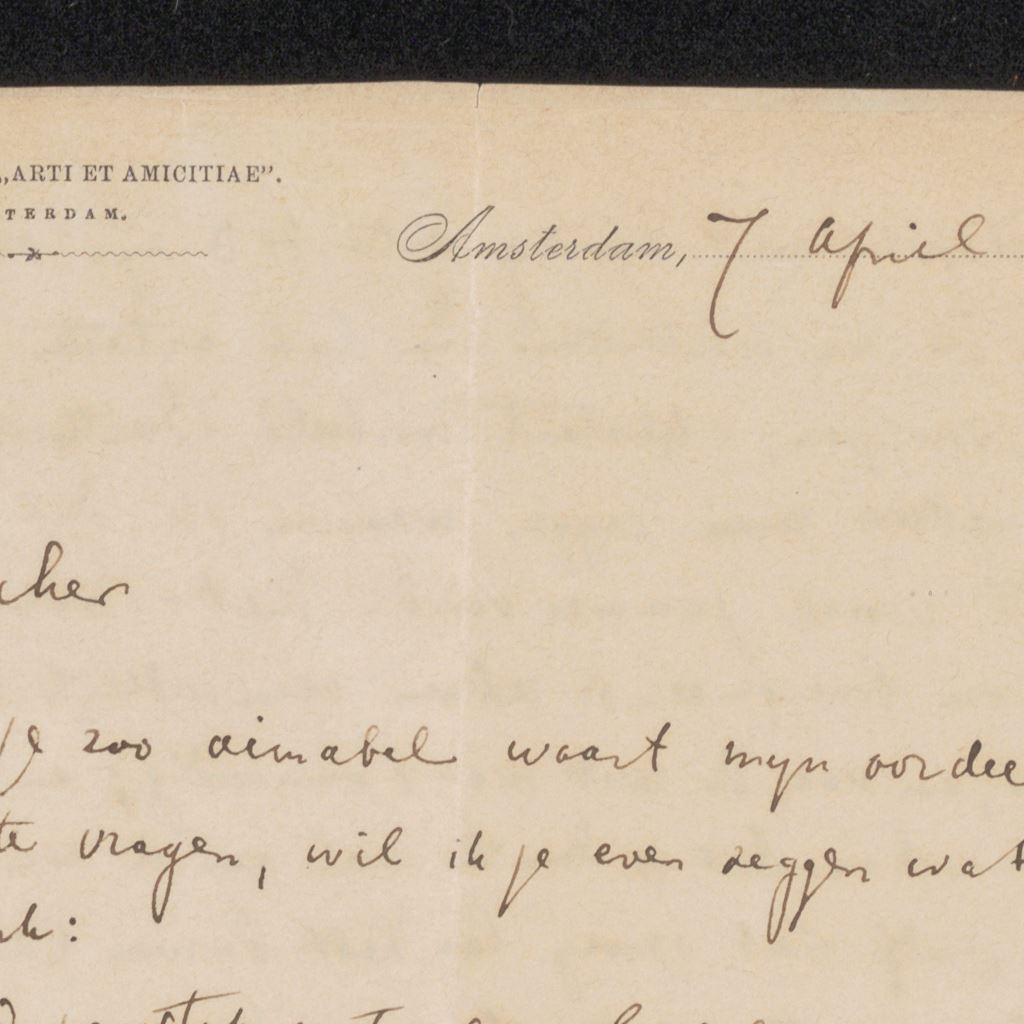 „ARTI ET AMICITIAE”.
TERDAM.
Amsterdam, 7 April
cher
je zoo aimabel waart mijn oordee
te vragen, wil ik je even zeggen wat
nk: